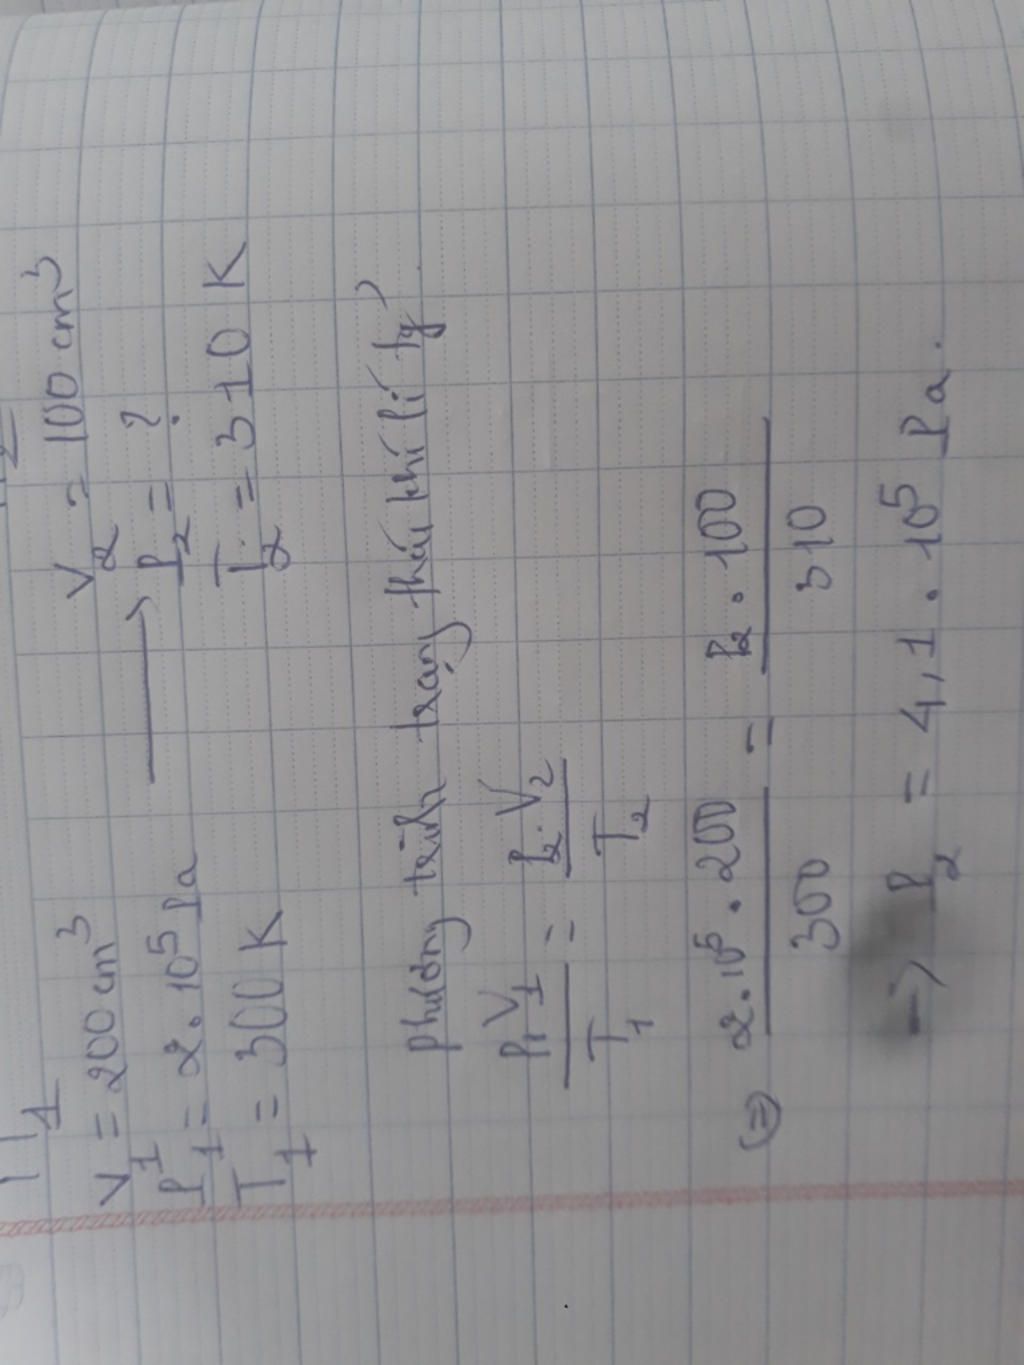 V₁ = 200 cm³ V₂ = 100 cm³
P₁ = 2.10⁵ Pa ⟶ P₂ = ?
T₁ = 300 K T₂ = 310 K
phương trình trạng thái khí lí tg'
P₁V₁/T₁ = P₂.V₂/T₂
(=) 2.10⁵.200/300 = P₂.100/310
=> P₂ = 4,1.10⁵ Pa.